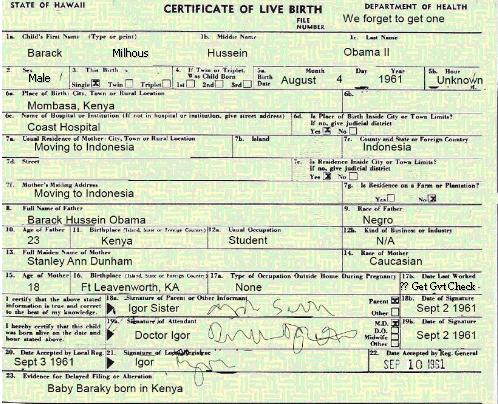 STATE OF HAWAII CERTIFICATE OF LIVE BIRTH DEPARTMENT OF HEALTH
FILE NUMBER We forget to get one
1a. Child's First Name (Type or print) 1b. Middle Name 1c. Last Name
Barack Milhous Hussein Obama II
2. Sex 3. This Birth 4. If Twin or Triplet, Was Child Born 5a. Birth Date Month Day Year 5b. Hour
Male Single Twin Triplet 1st 2nd 3rd August 4 1961 Unknown
6a. Place of Birth: City, Town or Rural Location 6b.
Mombasa, Kenya
6c. Name of Hospital or Institution (If not in hospital or institution, give street address) 6d. Is Place of Birth Inside City or Town Limits? If no, give judicial district
Coast Hospital Yes No
7a. Usual Residence of Mother: City, Town or Rural Location 7b. Island 7c. County and State or Foreign Country
Moving to Indonesia Indonesia
7d. Street 7e. Is Residence Inside City or Town Limits? If no, give judicial district
Yes No
7f. Mother's Mailing Address 7g. Is Residence on a Farm or Plantation?
Moving to Indonesia Yes No
8. Full Name of Father 9. Race of Father
Barack Hussein Obama Negro
10. Age of Father 11. Birthplace (Island, State or Foreign Country) 12a. Usual Occupation 12b. Kind of Business or Industry
23 Kenya Student N/A
13. Full Maiden Name of Mother 14. Race of Mother
Stanley Ann Dunham Caucasian
15. Age of Mother 16. Birthplace (Island, State or Foreign Country) 17a. Type of Occupation Outside Home During Pregnancy 17b. Date Last Worked
18 Ft Leavenworth, KA None ?? Get Gvt Check -
I certify that the above stated information is true and correct to the best of my knowledge. 18a. Signature of Parent or Other Informant Parent Other 18b. Date of Signature
Igor Sister Sept 2 1961
I hereby certify that this child was born alive on the date and hour stated above. 19a. Signature of Attendant M.D. D.O. Midwife Other 19b. Date of Signature
Doctor Igor Sept 2 1961
20. Date Accepted by Local Reg. 21. Signature of Local Registrar 22. Date Accepted by Reg. General
Sept 3 1961 Igor SEP 10 1961
23. Evidence for Delayed Filing or Alteration
Baby Baraky born in Kenya